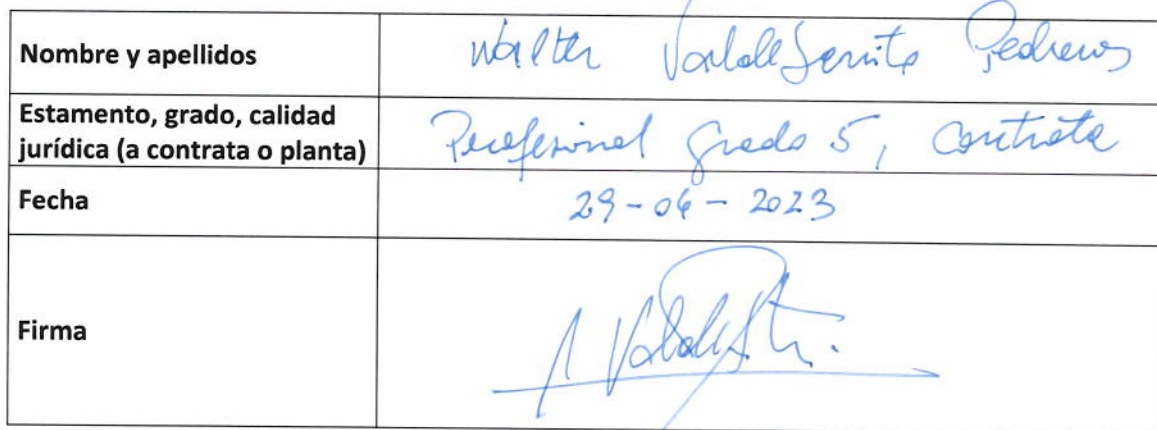 Nombre y apellidos
Walter Valdebenito Pedreros
Estamento, grado, calidad
jurídica (a contrata o planta)
Profesional grado 5, contrata
Fecha
29-06-2023
Firma